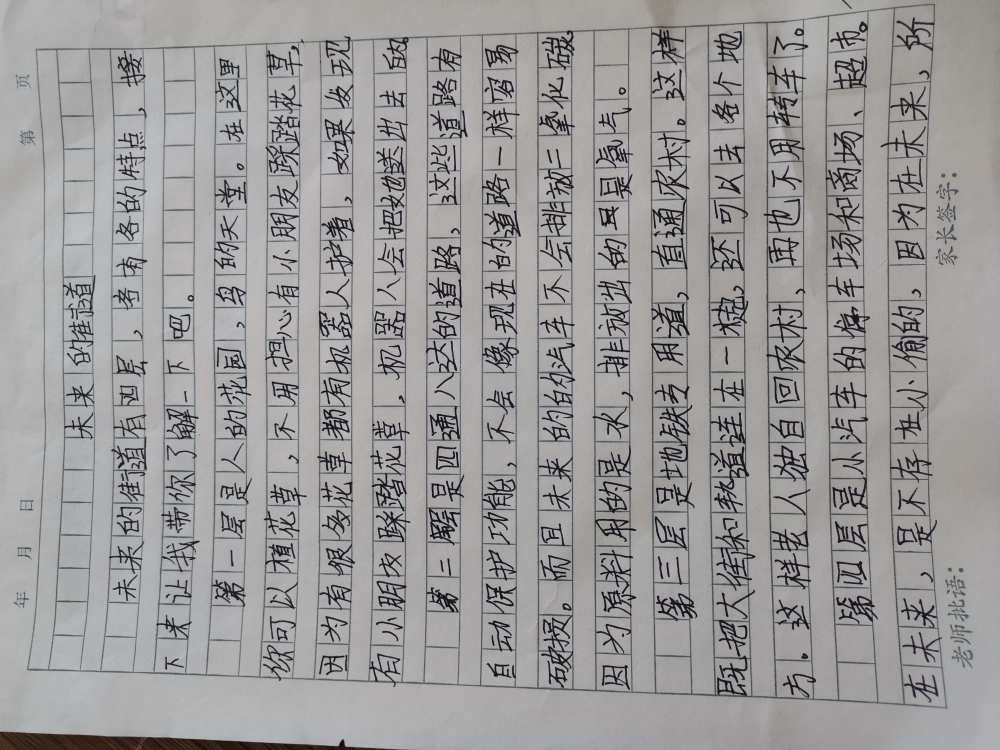 年 月 日 第 页
未来的街道
未来的街道有四层，各有各的特点，接
下来让我带你了解一下吧。
第一层是人的花园，鸟的天堂。在这里
你可以植花草，不用担心有小朋友踩踏花草，
因为有很多花草都有机器人护着，如果发现
有小朋友踩踏花草，机器人会把她送出去的。
第二层是四通八达的道路，这些道路有
自动保护功能，不会像现在的道路一样容易
破损。而且未来的的汽车不会排放二氧化碳
因为原料用的是水，排放出的只是氧气。
第三层是地铁专用道，直通农村。这样
既把大街和轨道连在一起，还可以去各个地
方。这样老人独自回农村，再也不用转车了。
第四层是小汽车的停车场和商场、超市。
在未来，是不存在小偷的，因为在未来，所
老师批语： 家长签字：